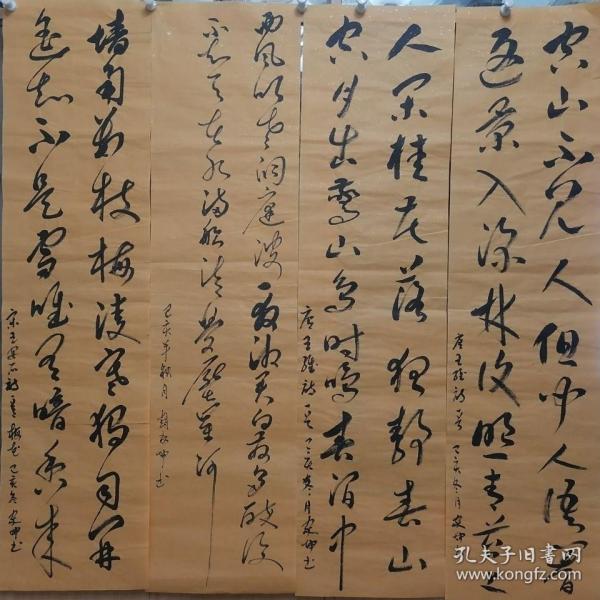 空山不见人但闻人语响
返景入深林复照青苔上
唐王维诗一首 己亥冬月
人闲桂花落夜静春山
空月出惊山鸟时鸣春涧中
唐王维诗一首 己亥冬月
西风吹老洞庭波一夜湘君白发多醉后
不知天在水满船清梦压星河
己亥年 月 书
墙角数枝梅凌寒独自开
遥知不是雪唯有暗香来
宋王安石诗 梅花 己亥冬 书
孔夫子旧书网
www.kongfz.com